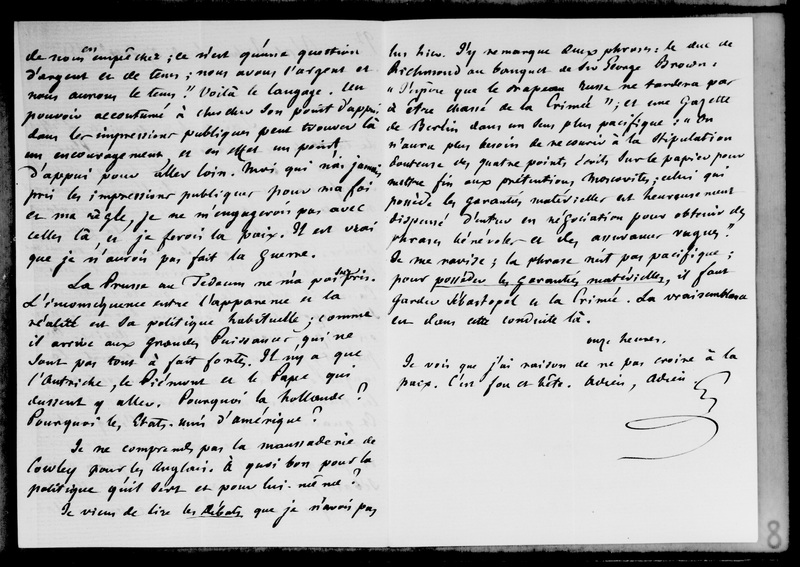 de nous en empêcher ; ce n'est qu'une question
d'argent et de tems ; nous avons l'argent et
nous aurons le tems." Voilà le langage. Un
pouvoir accoutumé à chercher son point d'appui
dans les impressions publiques peut trouver là
un encouragement, et en effet un point
d'appui pour aller loin. Moi qui n'ai jamais
pris les impressions publiques pour ma foi
et ma règle, je ne m'engagerois pas avec
celles là, et je ferois la paix. Il est vrai
que je n'aurois pas fait la guerre.
La Prusse au Tedeum ne m'a pas surpris.
L'inconséquence entre l'apparence et la
réalité est sa politique habituelle ; comme
il arrive aux grandes Puissances, qui ne
sont pas tout à fait fortes. Il n'y a que
l'Autriche, le Piémont et le Pape qui
dussent y aller. Pourquoi la hollande ?
Pourquoi les Etats-unis d'amérique ?
Je ne comprends pas la maussaderie de
Cowley pour les Anglais. À quoi bon pour la
politique qu'il sert et pour lui-même ?
Je viens de lire les Débats que je n'avois pas
lus hier. J'y remarque deux phrases : le duc de
Richmond au banquet de Sir George Brown :
" J'espère que le drapeau russe ne tardera pas
à être chassé de la Crimée " ; et une Gazette
de Berlin dans un sens plus pacifique : " On
n'aura plus besoin de recourir à la stipulation
boiteuse des quatre points, écrits sur le papier pour
mettre fin aux prétentions Moscovites ; celui qui
possède les garanties matérielles est heureusement
dispensé d'entrer en négociation pour obtenir des
phrases bénévoles et des assurances vagues."
Je me ravise ; la phrase n'est pas pacifique ;
pour posséder les garanties matérielles, il faut
garder Sébastopol et la Crimée. La vraisemblance
est dans cette conduite là.
onze heures.
Je vois que j'ai raison de ne pas croire à la
paix. C'est fou et bête. Adieu, Adieu
8